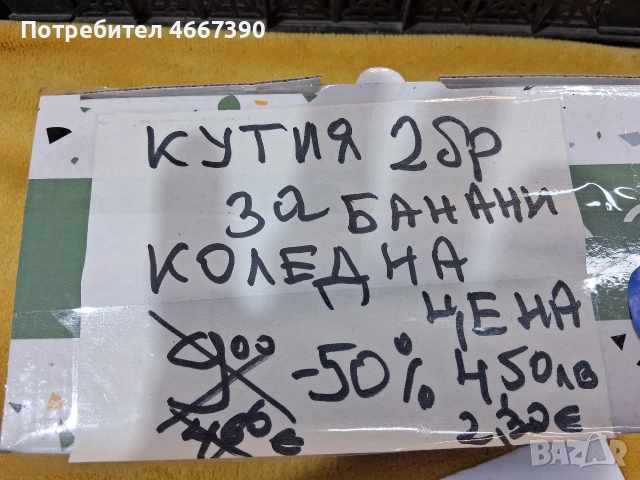 Потребител 4667390
КУТИЯ 2бр
за БАНАНИ
КОЛЕДНА
ЦЕНА
900 -50% 450лв
460€ 2,30€
BAZAR